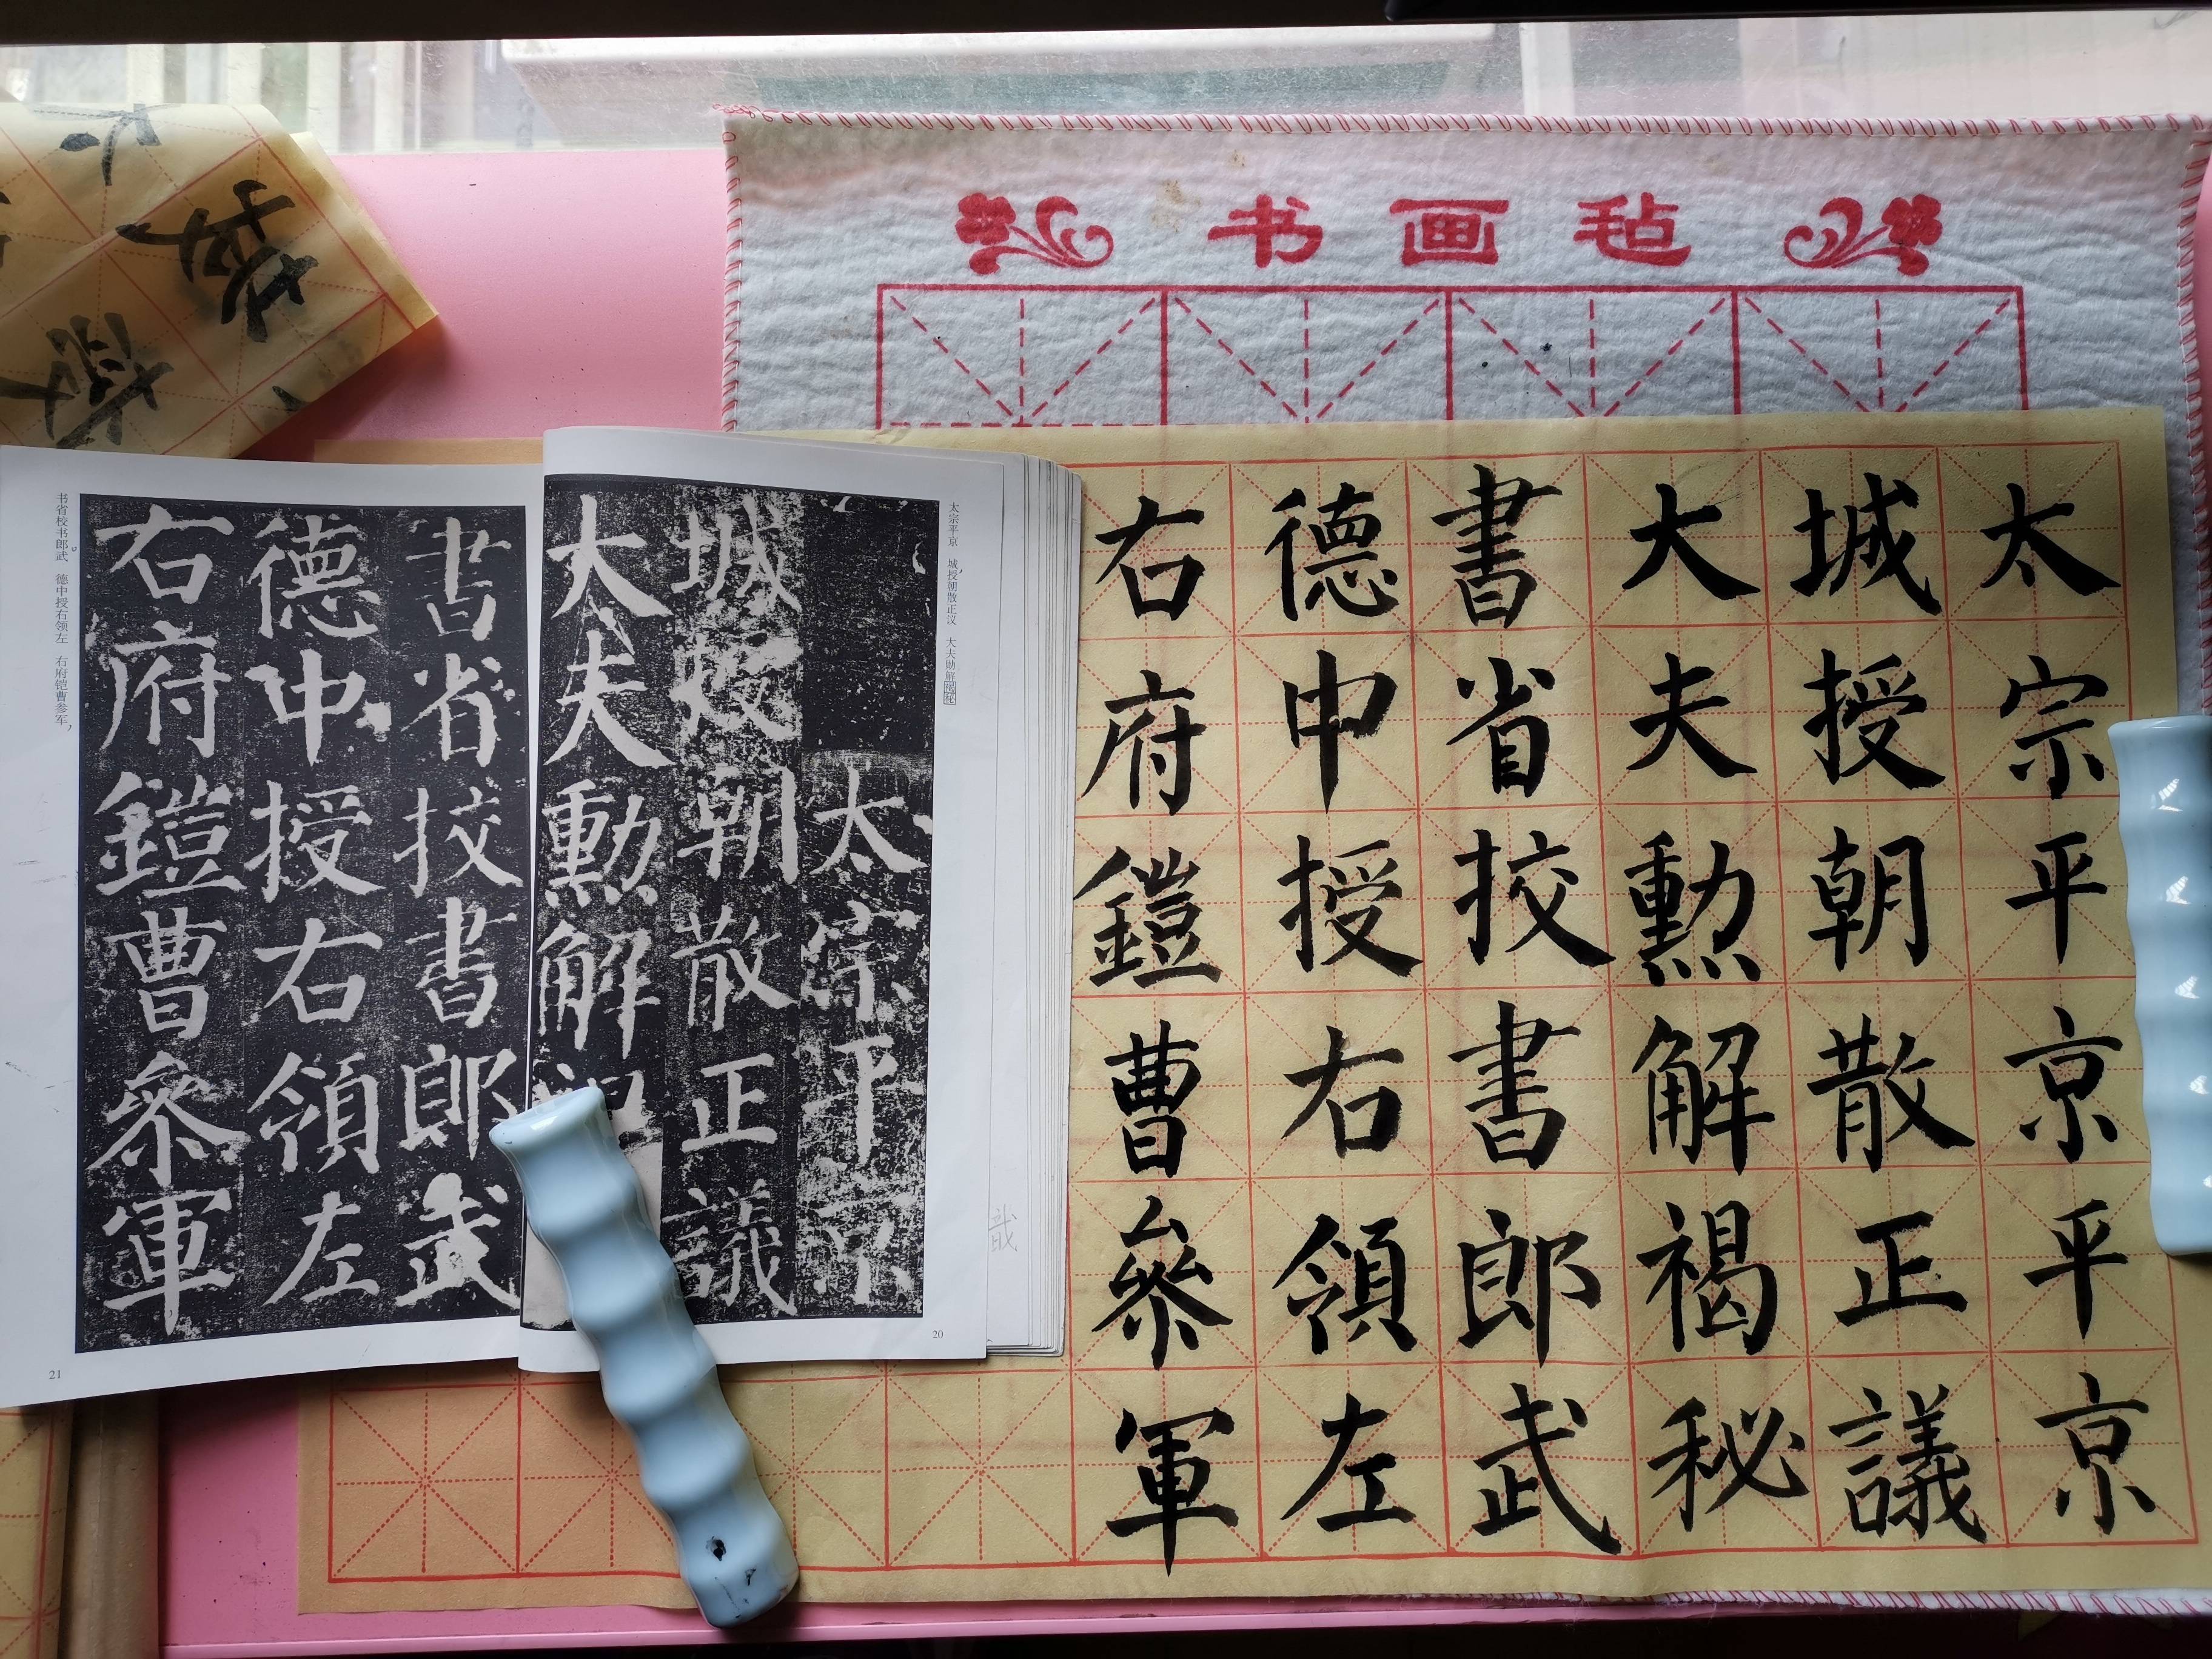 书画毡
太宗平京平京
城授朝散正議
大夫勳解褐秘
書省挍書郎武
德中授右領左
右府鎧曹參軍
太宗平京
城授朝散正議
大夫勳解
書省挍書郎武
德中授右領左
右府鎧曹參軍
太宗平京 城,授朝散正议 大夫勋解褐秘
20
书省校书郎武 德中授右领左 右府铠曹参军,
21